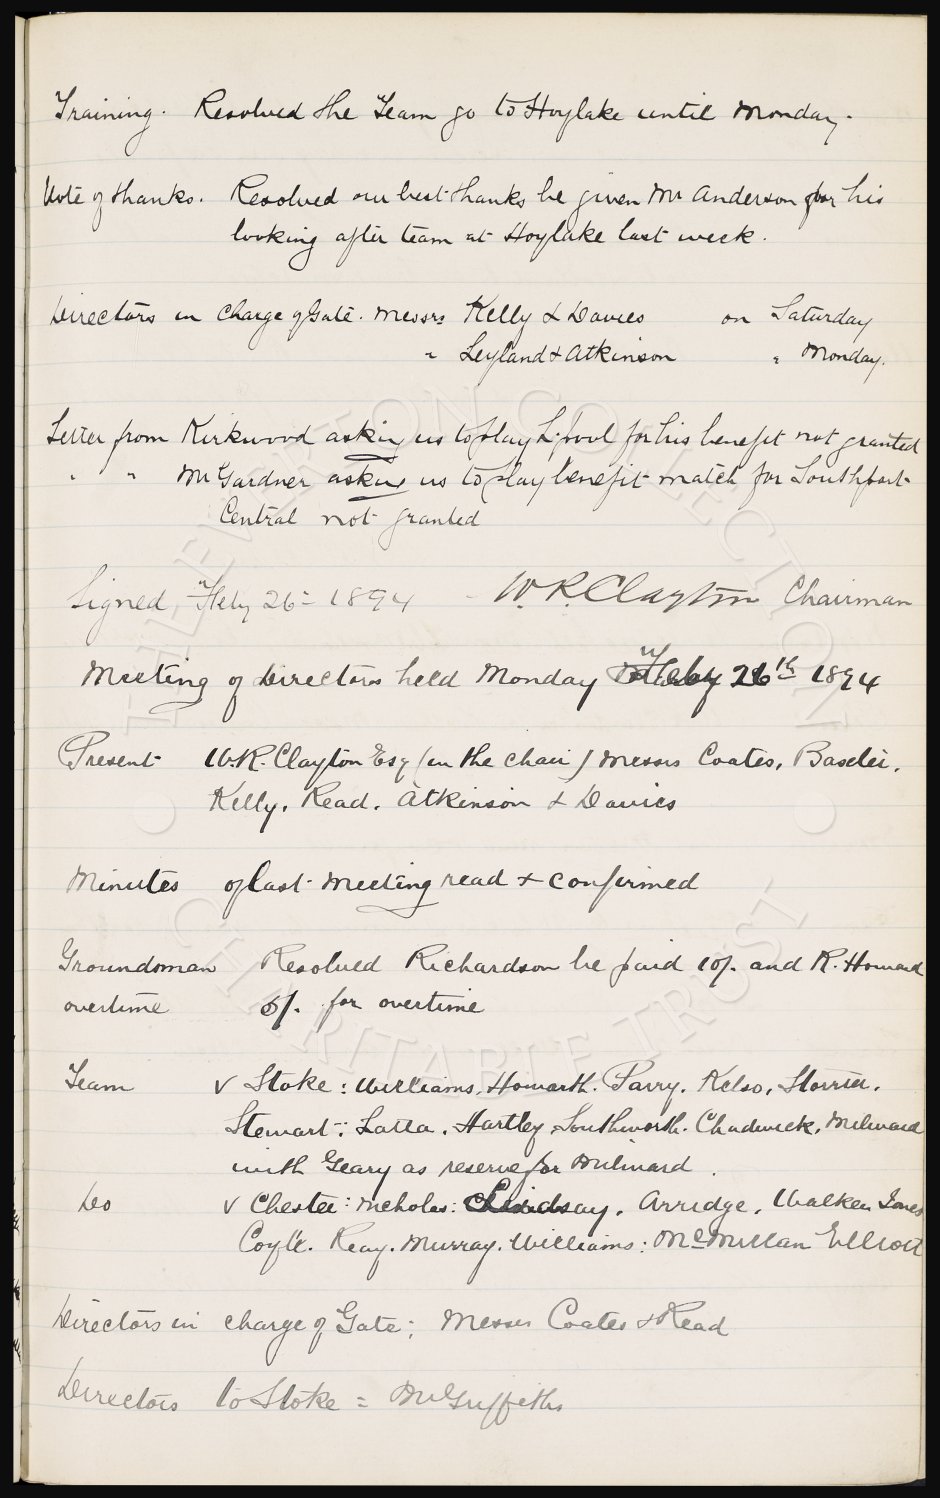 Training. Resolved the Team go to Hoylake until Monday.
Vote of thanks. Resolved our best thanks be given Mr Anderson for his
looking after team at Hoylake last week.
Directors in charge of Gate. Messrs Kelly & Davies on Saturday
" Leyland & Atkinson " Monday.
Letter from Kirkwood asking us to play L'pool for his benefit not granted
" " Mr Gardner asking us to play benefit match for Southport
Central not granted
Signed Feby 26 = 1894 W. R. Clayton Chairman
Meeting of Directors held Monday Feby 26th 1894
Present W.R. Clayton Esq (in the chair) Messrs Coates, Baxter,
Kelly, Read, Atkinson & Davies
Minutes of last meeting read & confirmed
Groundsman Resolved Richardson be paid 10/- and R. Howard
overtime 5/- for overtime
Team v Stoke: Williams, Howarth. Parry, Kelso, Storrier,
Stewart; Latta, Hartley, Southworth. Chadwick, Milward
with Geary as reserve for Milward.
Do v Chester: Nicholas: Lindsay, Arridge, Walker Jones
Coyle. Reay. Murray. Williams: McMillan Elliott
Directors in charge of Gate: Messrs Coates & Read
Directors to Stoke = Mr Griffiths
THE EVERTON COLLECTION
CHARITABLE TRUST